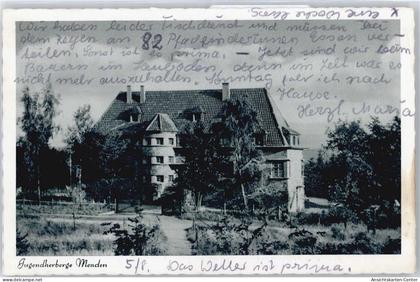 x eine Woche Kess.
Wir haben leider Tischdienst und müssen bei
dem Regen an 82 Pfadfinderinnen Essen ver-
teilen. Sonst ist es prima. – Jetzt sind wir beim
Bauern im denn im Zelt was es
nicht mehr auszuhalten. Sonntag fahr ich nach
Hause. Herzl. Maria
Jugendherberge Menden
5/8. Das Wetter ist prima.